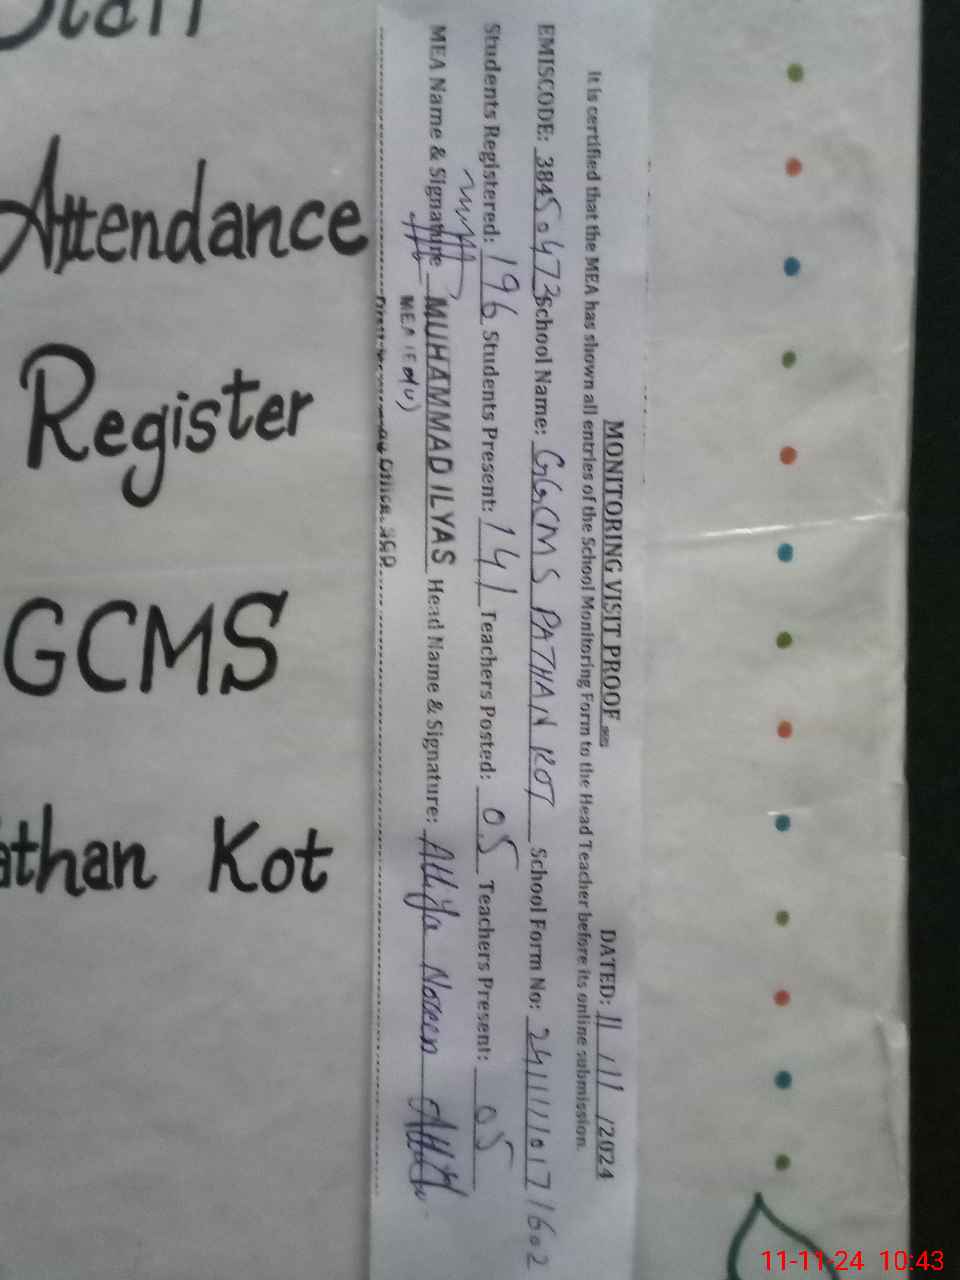 Staff
Attendance
Register
GCMS
athan Kot
MONITORING VISIT PROOF DATED: 11/11/2024
It is certified that the MEA has shown all entries of the School Monitoring Form to the Head Teacher before its online submission.
EMISCODE: 38450473 School Name: GGCMS PATHAN KOT School Form No: 2411110171602
Students Registered: 196 Students Present: 141 Teachers Posted: 05 Teachers Present: 05
MEA Name & Signature MUHAMMAD ILYAS Head Name & Signature: Attiya Noreen
MEA (Edu)
Office, SGD
11-11-24 10:43